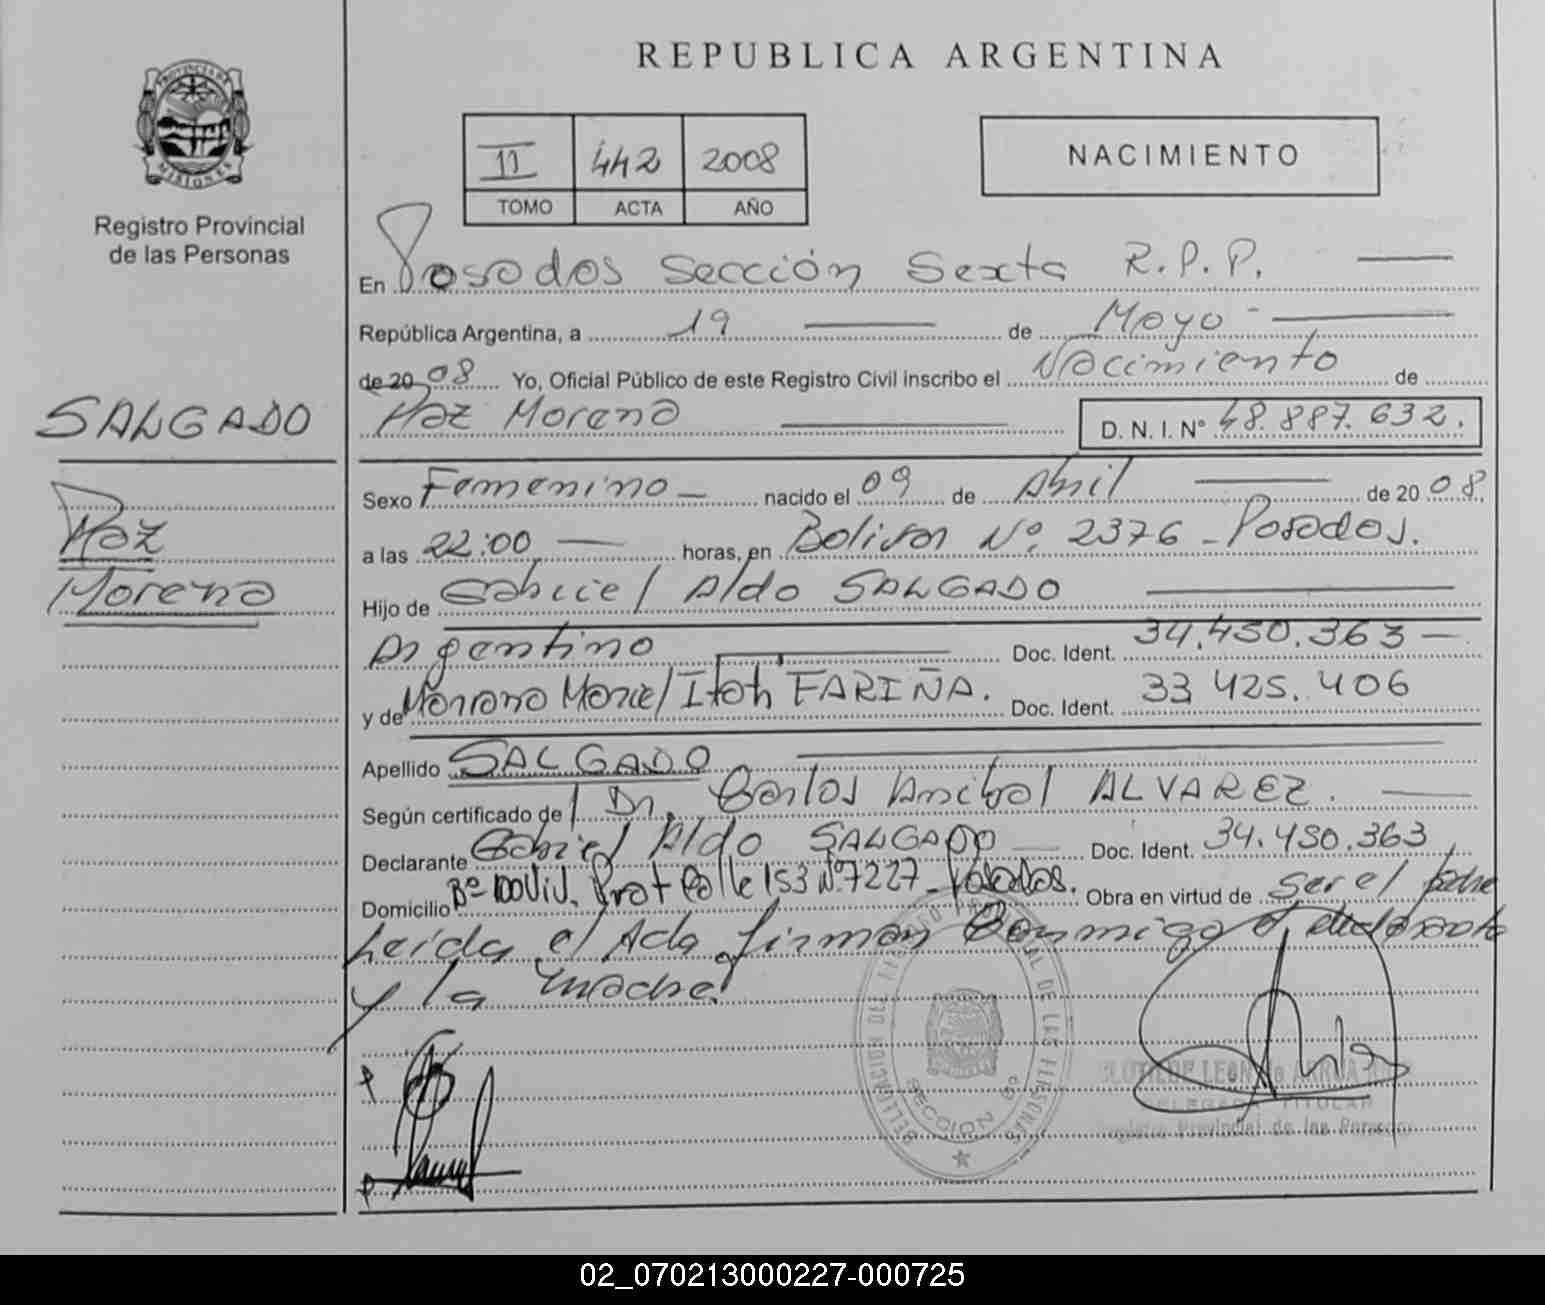 REPUBLICA ARGENTINA
PROVINCIA DE
MISIONES
Registro Provincial
de las Personas
II 442 2008
TOMO ACTA AÑO
NACIMIENTO
En Posadas Sección Sexta R.P.P.
República Argentina, a 19 de Mayo
de 2008 Yo, Oficial Público de este Registro Civil inscribo el Nacimiento de
Paz Morena D. N. I. N° 48.887.632.
SALGADO
Paz
Morena
Sexo Femenino nacido el 09 de Abril de 2008
a las 22:00 horas, en Bolivar Nº. 2376 - Posadas.
Hijo de Gabriel Aldo SALGADO
Argentino Doc. Ident. 34.450.363
y de Mariel Itatí FARIÑA. Doc. Ident. 33 425.406
Apellido SALGADO
Según certificado del Dr. Carlos Anibal ALVAREZ.
Declarante Gabriel Aldo SALGADO Doc. Ident. 34.450.363
Domicilio Bº 100 Viv. Prof Calle 153 Nº 7227 - Posadas. Obra en virtud de ser el padre
Leída el Acta firman Conmigo el declarante
y la madre
DELEGACION DEL REGISTRO PROVINCIAL DE LAS PERSONAS
SECCION 6ª
DELEGADA TITULAR
Registro Provincial de las Personas
02_070213000227-000725